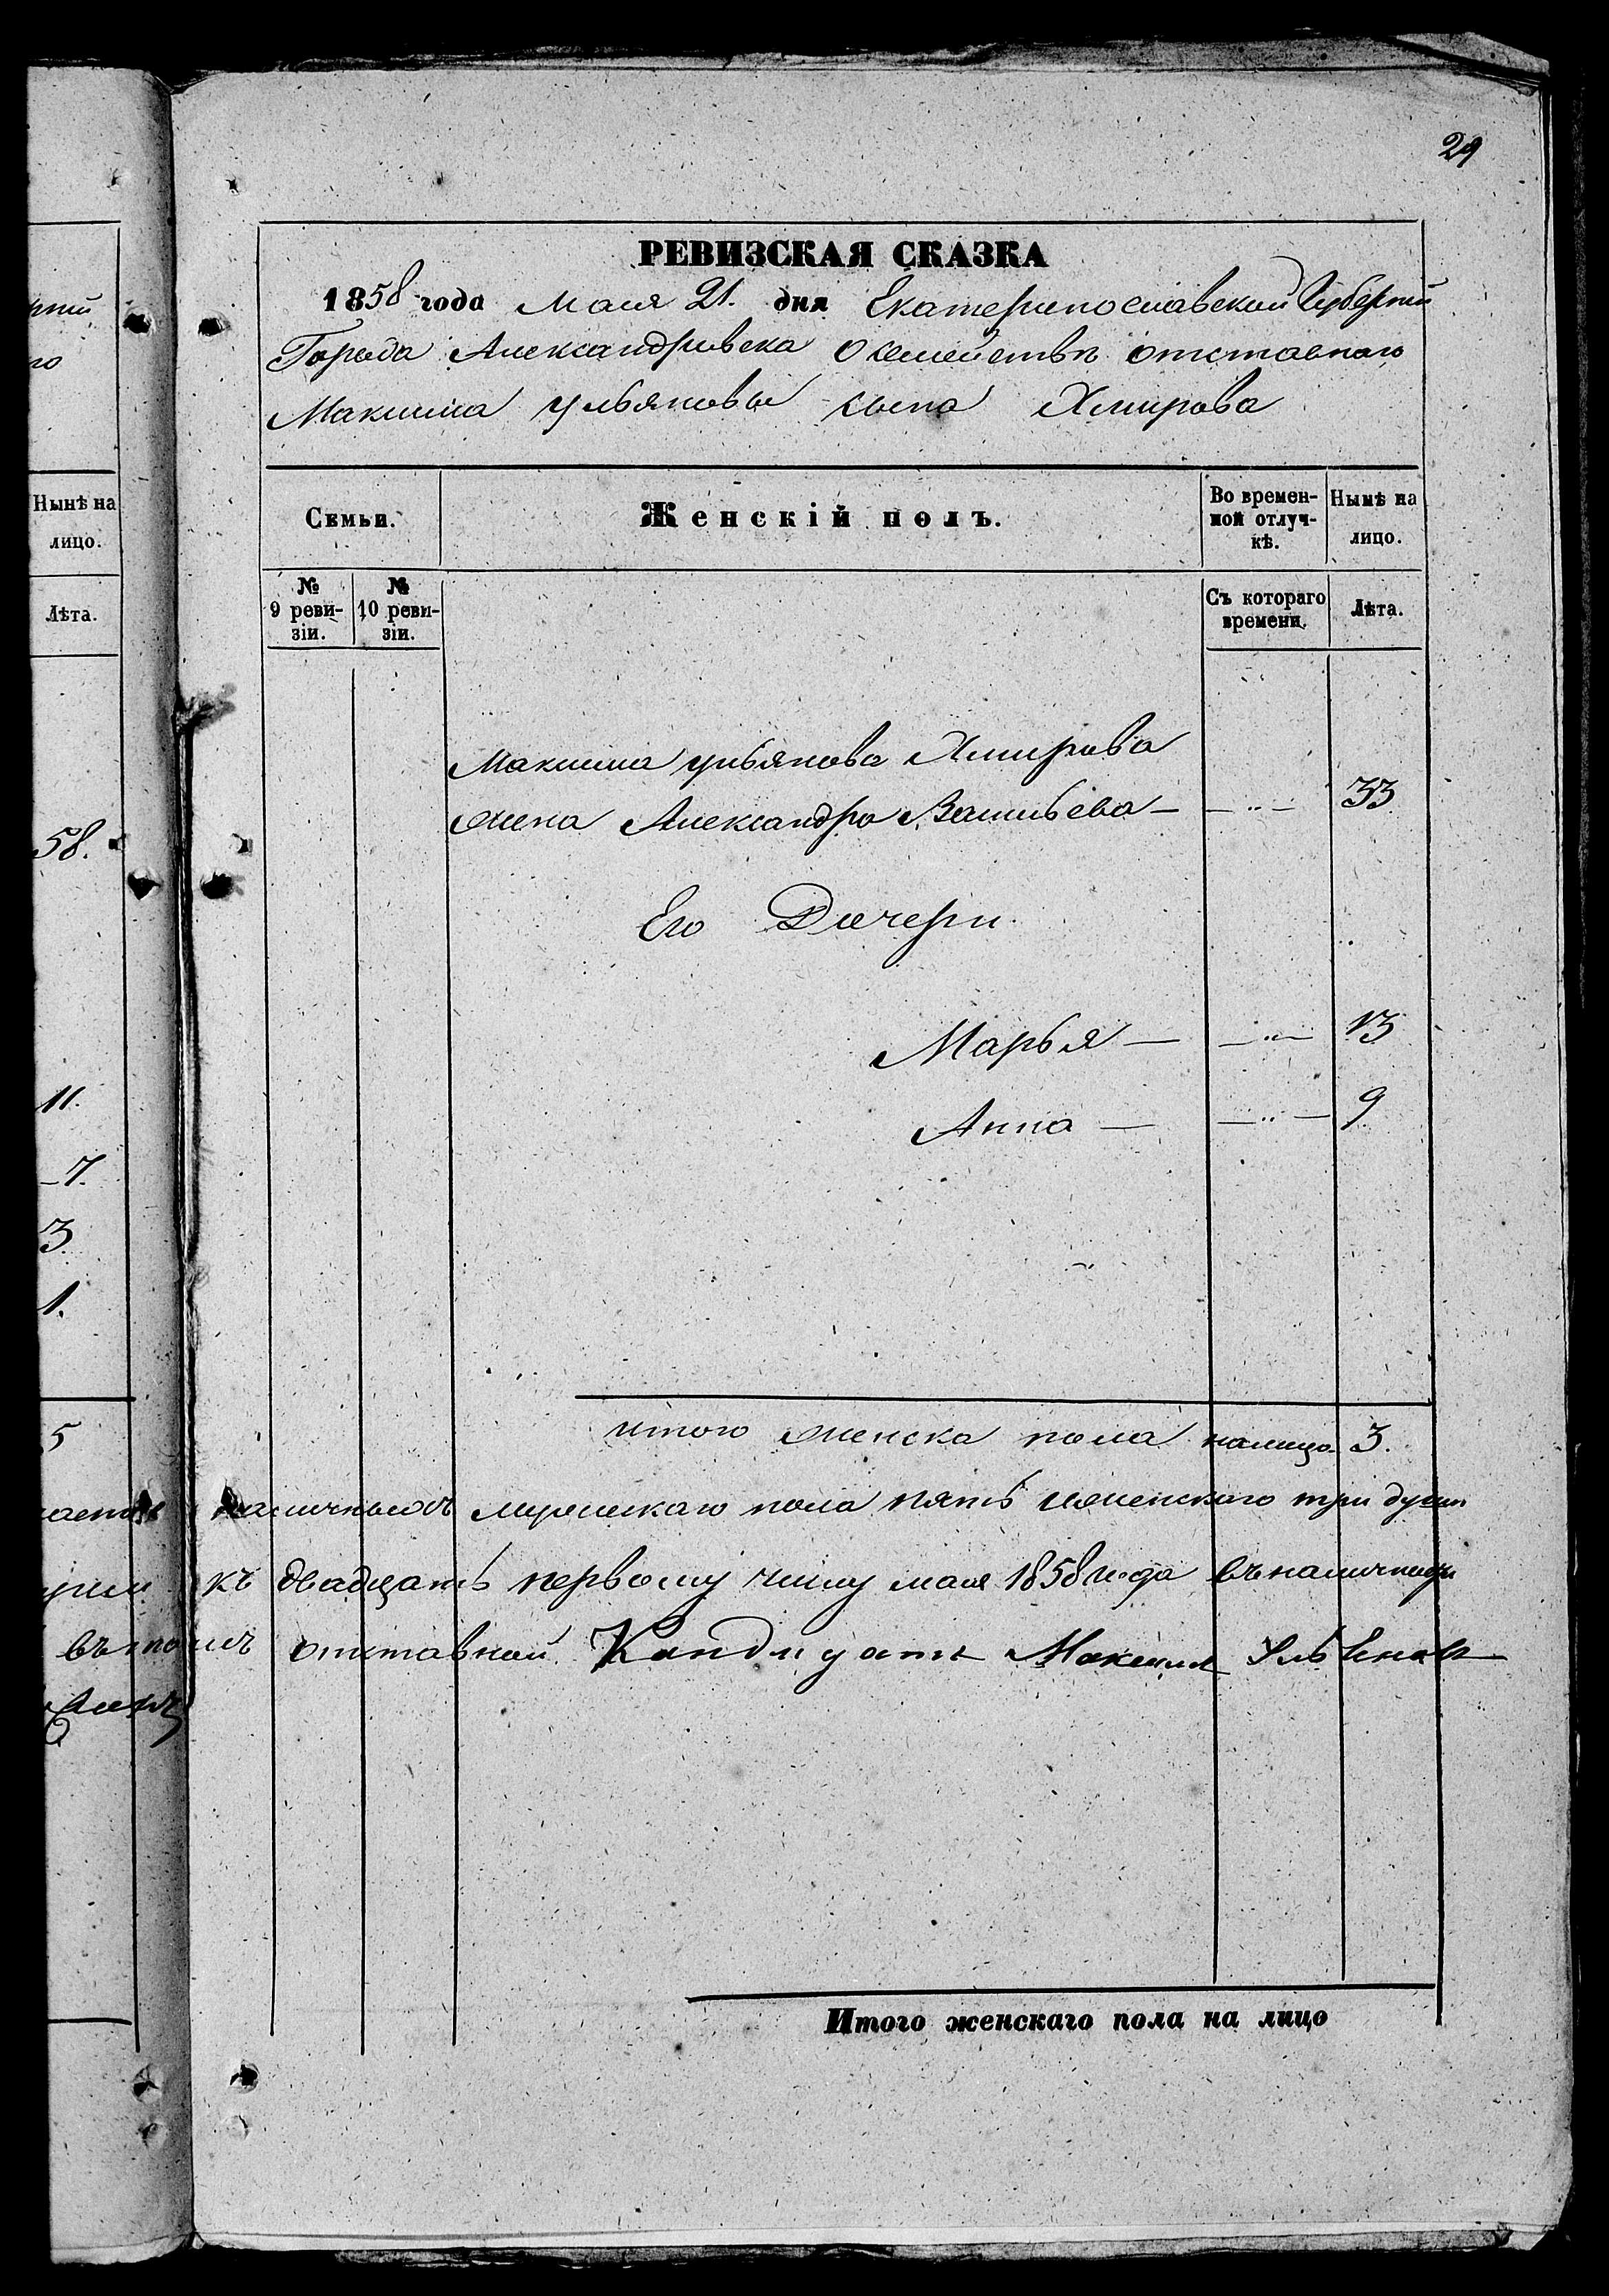 29
РЕВИЗСКАЯ СКАЗКА
1858 года Маія 21. дня Екатеринославской Губерніи
Города Александровска О семействѣ отставнаго
Максима Ульянова сына Хмирова
Нынѣ на лицо.
Лѣта.
58.
11.
7.
3
1.
5
Семьи.
Женскій полъ.
Во времен-
ной отлуч-
кѣ.
Нынѣ на
лицо.
№
9 реви-
зіи.
№
10 реви-
зіи.
Съ котораго
времени.
Лѣта.
Максима Ульянова Хмирова
жена Александра Васильева — — „ — 33
Его Дочери
Марья — — „ — 13
Анна — — „ — 9
итого женска пола налицо 3.
мужескаго пола пять и женскаго три души
къ двадцать первому числу маія 1858 года
въ томъ отставной Максим
Итого женскаго пола на лицо